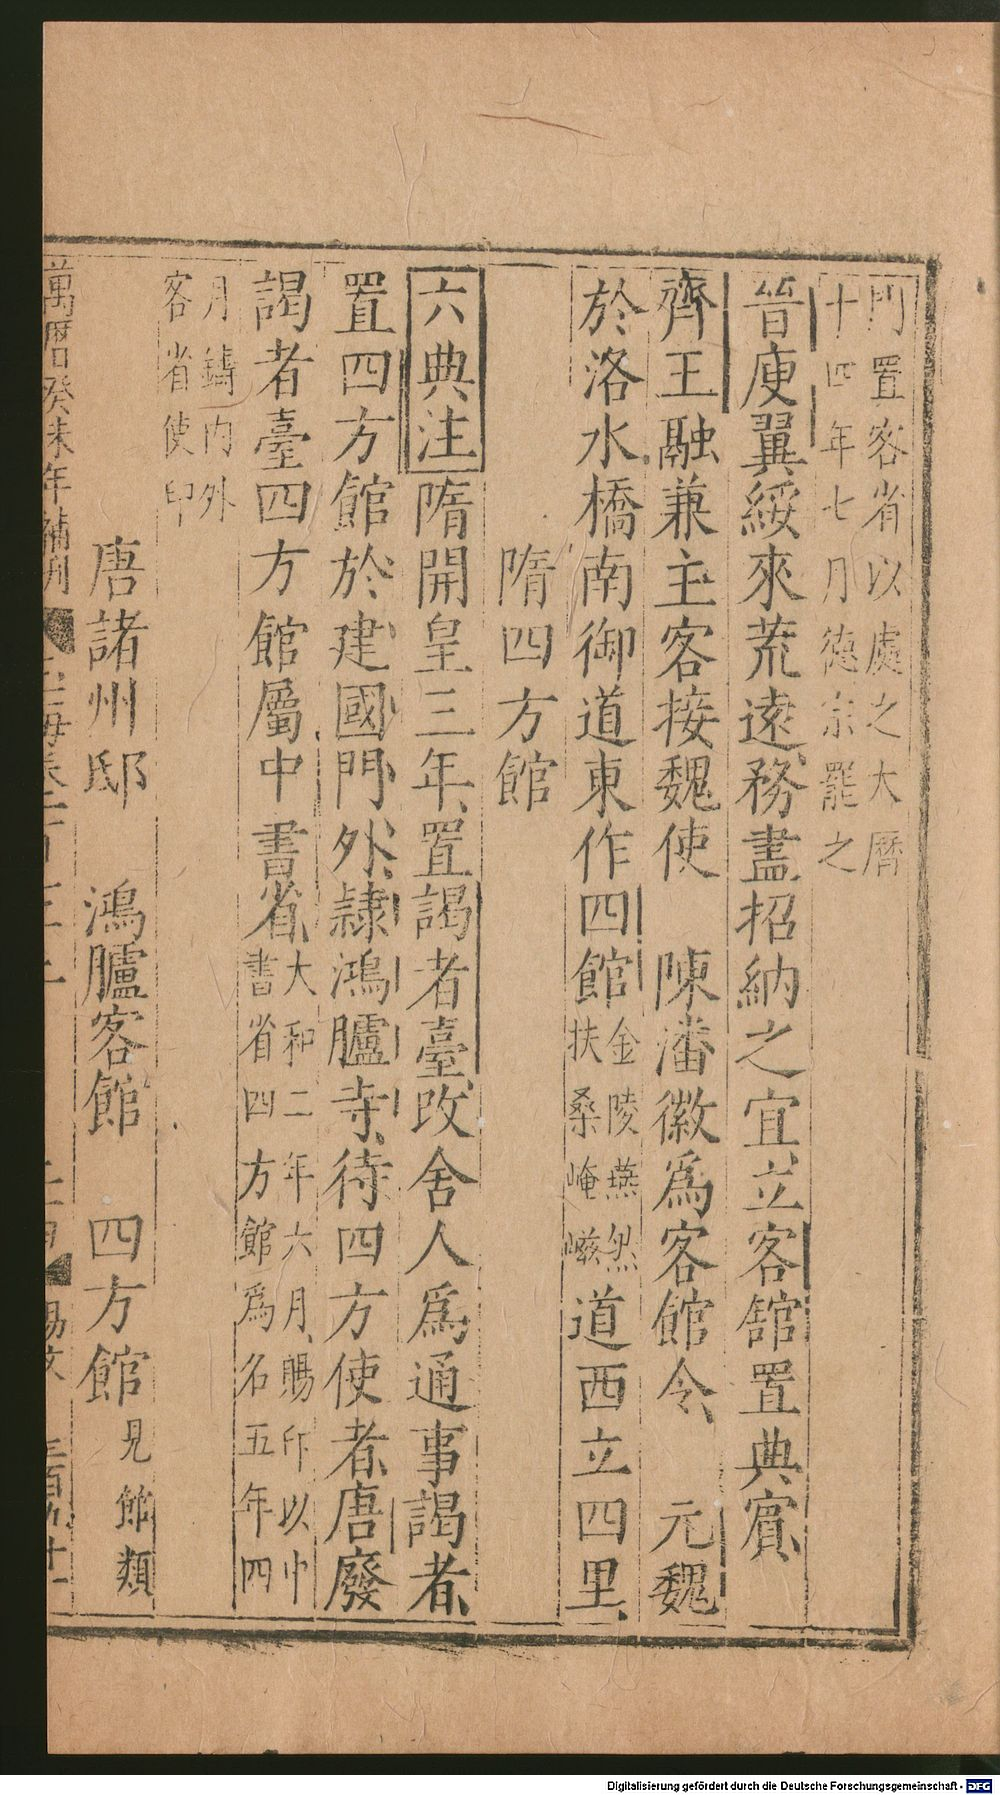 門置客省以處之大曆
十四年七月德宗罷之
晉庾翼綏來荒遠務盡招納之宜立客館置典賓
齊王融兼主客接魏使　陳潘徽為客館令　元魏
於洛水橋南御道東作四館金陵燕然扶桑崦嵫道西立四里
隋四方館
六典注隋開皇三年置謁者臺改舍人為通事謁者
置四方館於建國門外隷鴻臚寺待四方使者唐廢
謁者臺四方館屬中書省大和二年六月賜印以中書省四方館為名五年四
月鑄内外
客省使印
唐諸州邸　鴻臚客館　四方館見館類
萬曆癸未年補刊
Digitalisierung gefördert durch die Deutsche Forschungsgemeinschaft - DFG